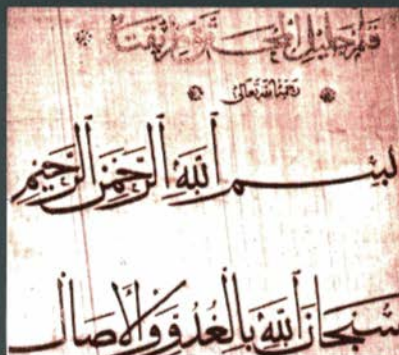 قلم جليل
رحمة الله تعالى
بِسْمِ اللهِ الرَّحْمٰنِ الرَّحِيمِ
سُبْحَانَ اللهِ بِالْغُدُوِّ وَالْآصَالِ